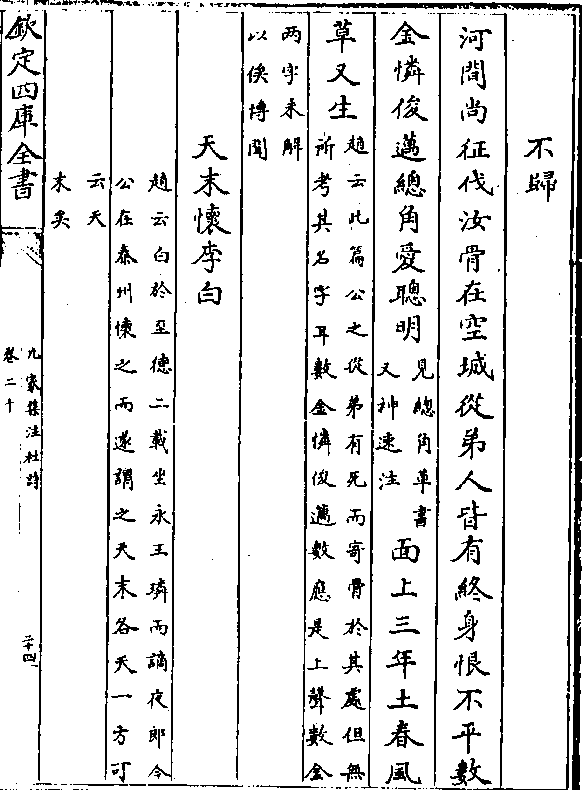 不歸
河間尚征伐汝骨在空城從弟人皆有終身恨不平數
金憐俊邁總角愛聰明
見總角草書
又神速注
面上三年土春風
草又生
趙云此篇公之從弟有死而寄骨於其處但無
所考其名字耳數金憐俊邁數應是上聲數金
兩字未解
以俟博聞
天末懷李白
趙云白於至德二載坐永王璘而謫夜郎今
公在秦州懷之而遂謂之天末各天一方可
云天
末矣
欽定四庫全書
九家集注杜詩
卷二十
二十四